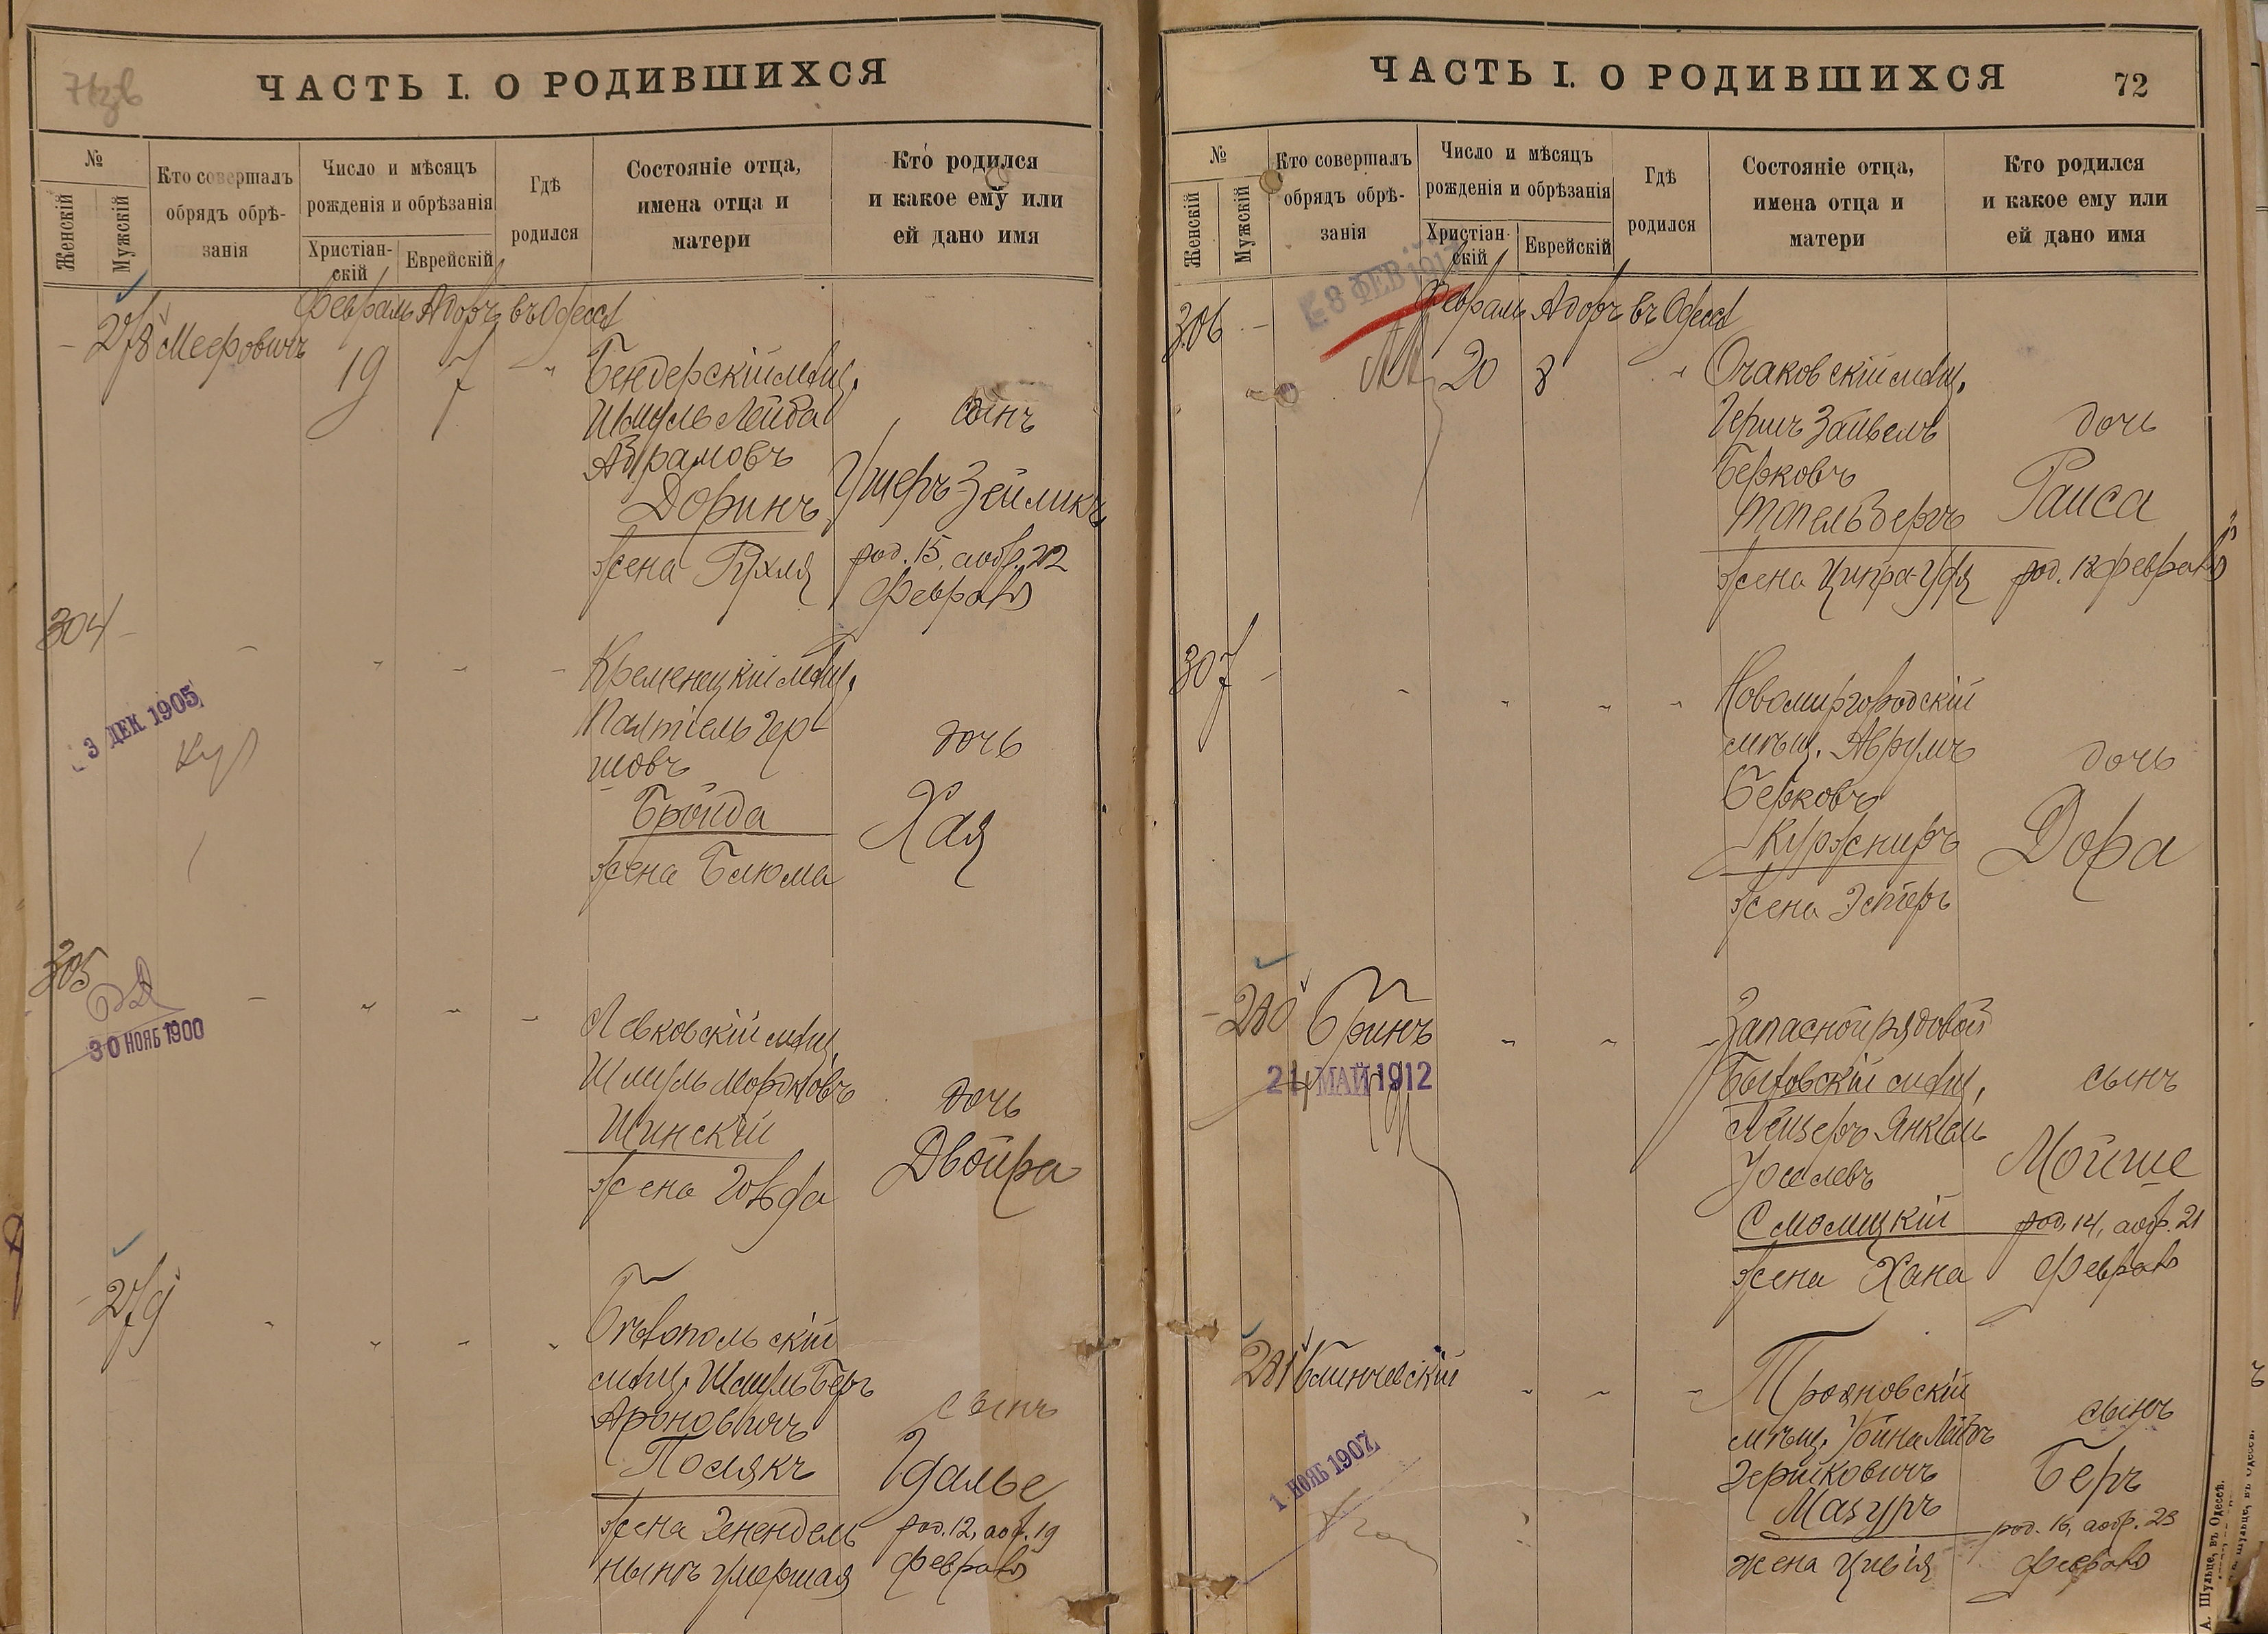 ЧАСТЬ I. О РОДИВШИХСЯ
№
Женскій
Мужскій
Кто совершалъ
обрядъ обрѣ-
занія
Число и мѣсяцъ
рожденія и обрѣзанія
Христіан-
скій
Еврейскій
Гдѣ
родился
Состояніе отца,
имена отца и
матери
Кто родился
и какое ему или
ей дано имя
Февраль Адоръ въ Одессѣ
278 Мееровичъ
19 7 "
Бендерскій мѣщ.
Шмуль Лейба
Абрамовъ
Доринъ
жена Рухля
сынъ
Ушеръ Зейликъ
род. 15, а обр. 22
февраля
304
3 ДЕК 1905
Кременецкій мѣщ.
Палтіель Гер-
шовъ
Бройда
жена Блюма
дочь
Хая
305
30 НОЯБ 1900
Левковскій мѣщ.
Шмуль Мордковъ
Шинскій
жена Гольда
дочь
Двойра
279
мѣщ. Шмуль Беръ
Ароновичъ
Полякъ
жена Генендель
нынѣ умершая
сынъ
Гдалье
род. 12, а обр. 19
февраля
ЧАСТЬ I. О РОДИВШИХСЯ
72
№
Женскій
Мужскій
Кто совершалъ
обрядъ обрѣ-
занія
Число и мѣсяцъ
рожденія и обрѣзанія
Христіан-
скій
Еврейскій
Гдѣ
родился
Состояніе отца,
имена отца и
матери
Кто родился
и какое ему или
ей дано имя
8 ФЕВ
Февраль Адоръ въ Одессѣ
306
20 8 "
Очаковскій мѣщ.
Гершъ Зайвель
Берковъ
Топельбергъ
жена Ципра-Удя
дочь
Раиса
род. 18 февраля
307
Новомиргородскій
мѣщ. Аврумъ
Берковъ
Кужниръ
жена Эстеръ
дочь
Дора
280 Бринъ
24 МАЙ 1912
Запасной рядовой
мѣщ.
Лейзеръ Янкель
Іоселевъ
Смолицкій
жена Хана
сынъ
Мойше
род. 14, а обр. 21
февраля
281 Блинчевскій
1 НОЯБ 1907
Трояновскій
мѣщ. Іойна Лейбъ
Гершковичъ
Мазуръ
жена Цивія
сынъ
Беръ
род. 16, а обр. 23
февраля
А. Шульце, въ Одессѣ.